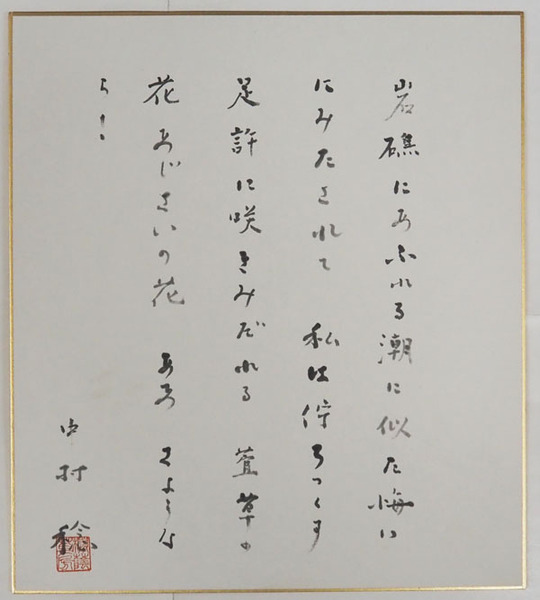 岩礁にあふれる潮に似た悔い
にみたされて 私は佇ちつくす
足許に咲きみだれる 萱草の
花 あじさいの花 ああ さような
ら!
中村 稔